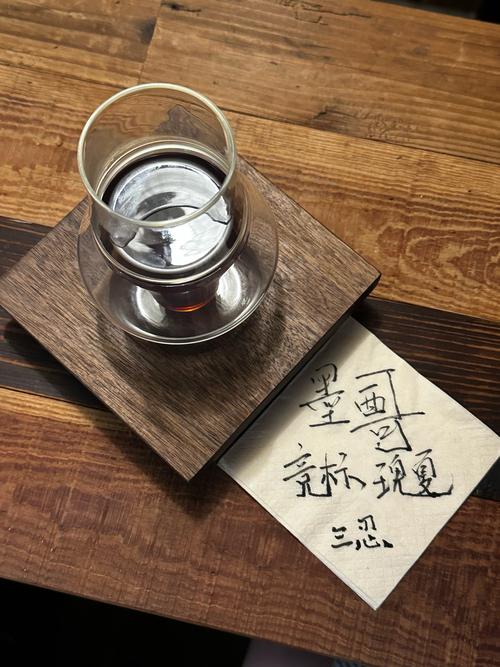 墨西哥
竞标瑰夏
三忍